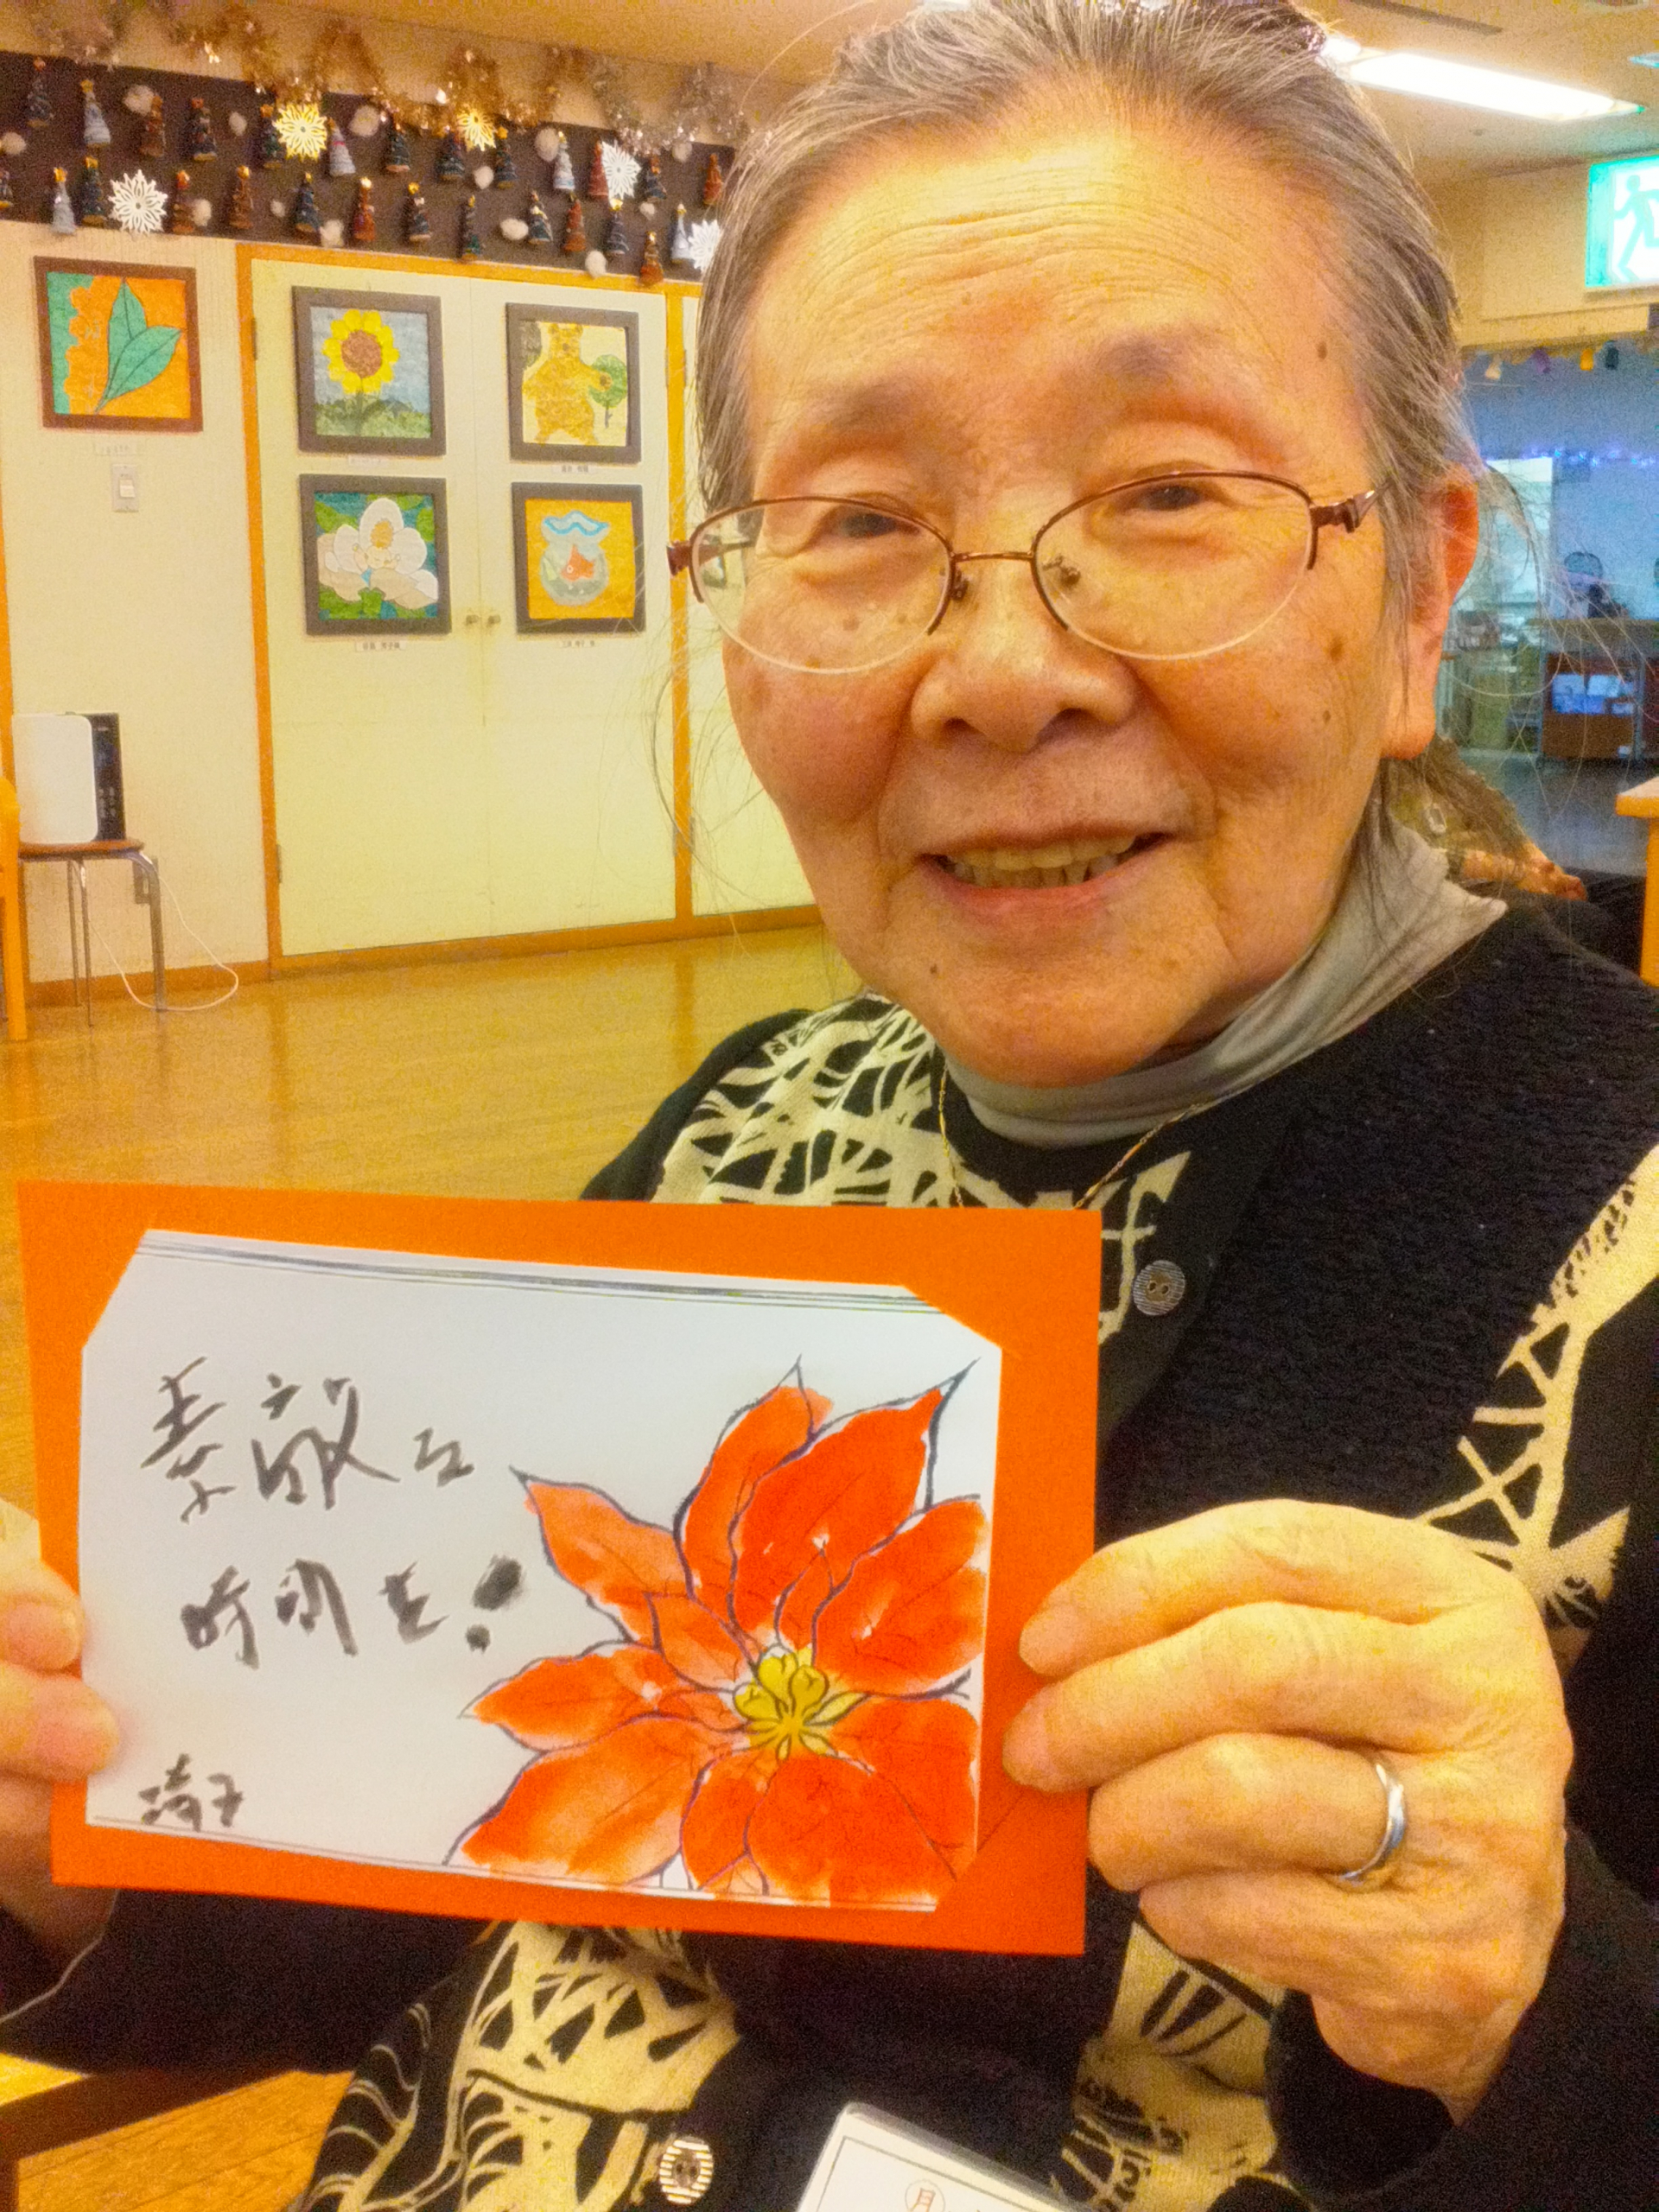 素敵な
時間を!
琦子
月